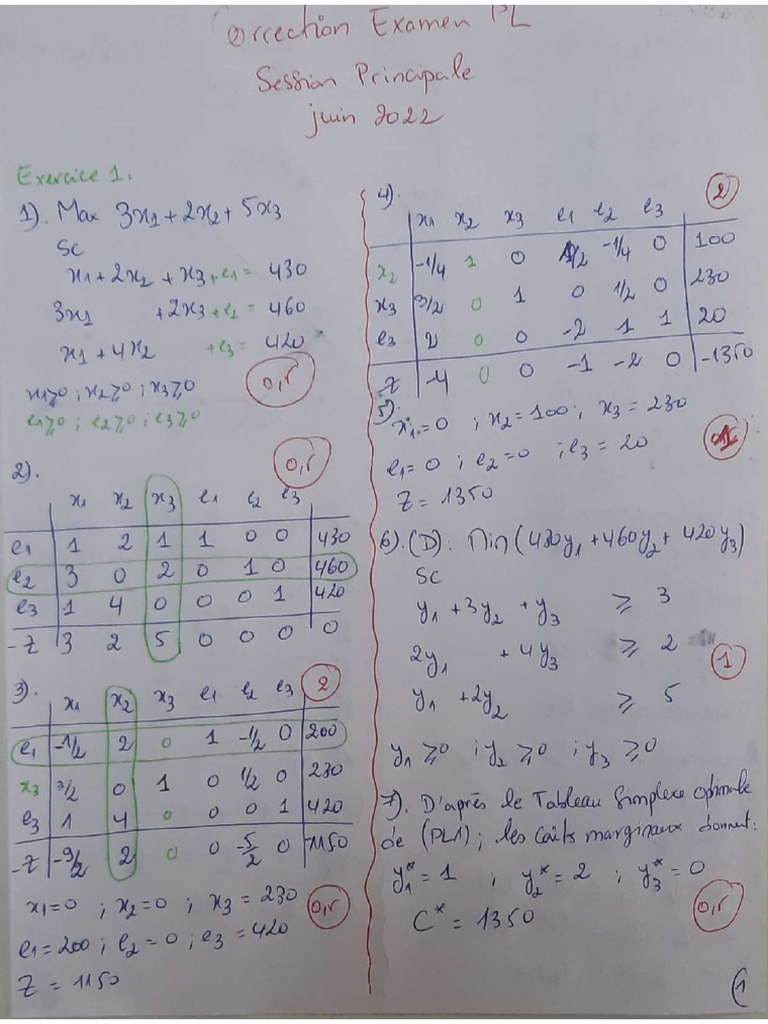 Correction Examen PL
Session Principale
juin 2022
Exercice 1.
1). Max 3x1 + 2x2 + 5x3
SC
x1 + 2x2 + x3 + e1 = 430
3x1 + 2x3 + e2 = 460
x1 + 4x2 + e3 = 420
x1≥0 ; x2≥0 ; x3≥0
e1≥0 ; e2≥0 ; e3≥0
0,5
2).
0,5
x1 x2 x3 e1 e2 e3
e1 1 2 1 1 0 0 430
e2 3 0 2 0 1 0 460
e3 1 4 0 0 0 1 420
-Z 3 2 5 0 0 0 0
3).
2
x1 x2 x3 e1 e2 e3
e1 -1/2 2 0 1 -1/2 0 200
x3 3/2 0 1 0 1/2 0 230
e3 1 4 0 0 0 1 420
-Z -9/2 2 0 0 -5/2 0 -1150
x1=0 ; x2=0 ; x3 = 230
0,5
e1=200 ; e2=0 ; e3 = 420
Z = 1150
4).
2
x1 x2 x3 e1 e2 e3
x2 -1/4 1 0 1/2 -1/4 0 100
x3 3/2 0 1 0 1/2 0 230
e3 2 0 0 -2 1 1 20
-Z -4 0 0 -1 -2 0 -1350
5).
x1=0 ; x2=100 ; x3 = 230
e1=0 ; e2=0 ; e3 = 20
1
Z = 1350
6). (D): Min (430y1 + 460y2 + 420y3)
SC
y1 + 3y2 + y3 ≥ 3
2y1 + 4y3 ≥ 2
1
y1 + 2y2 ≥ 5
y1 ≥0 ; y2 ≥0 ; y3 ≥0
7). D'après le Tableau Simplexe optimale
de (PL1) ; les coûts marginaux donnent:
y1* = 1 ; y2* = 2 ; y3* = 0
C* = 1350
0,5
1